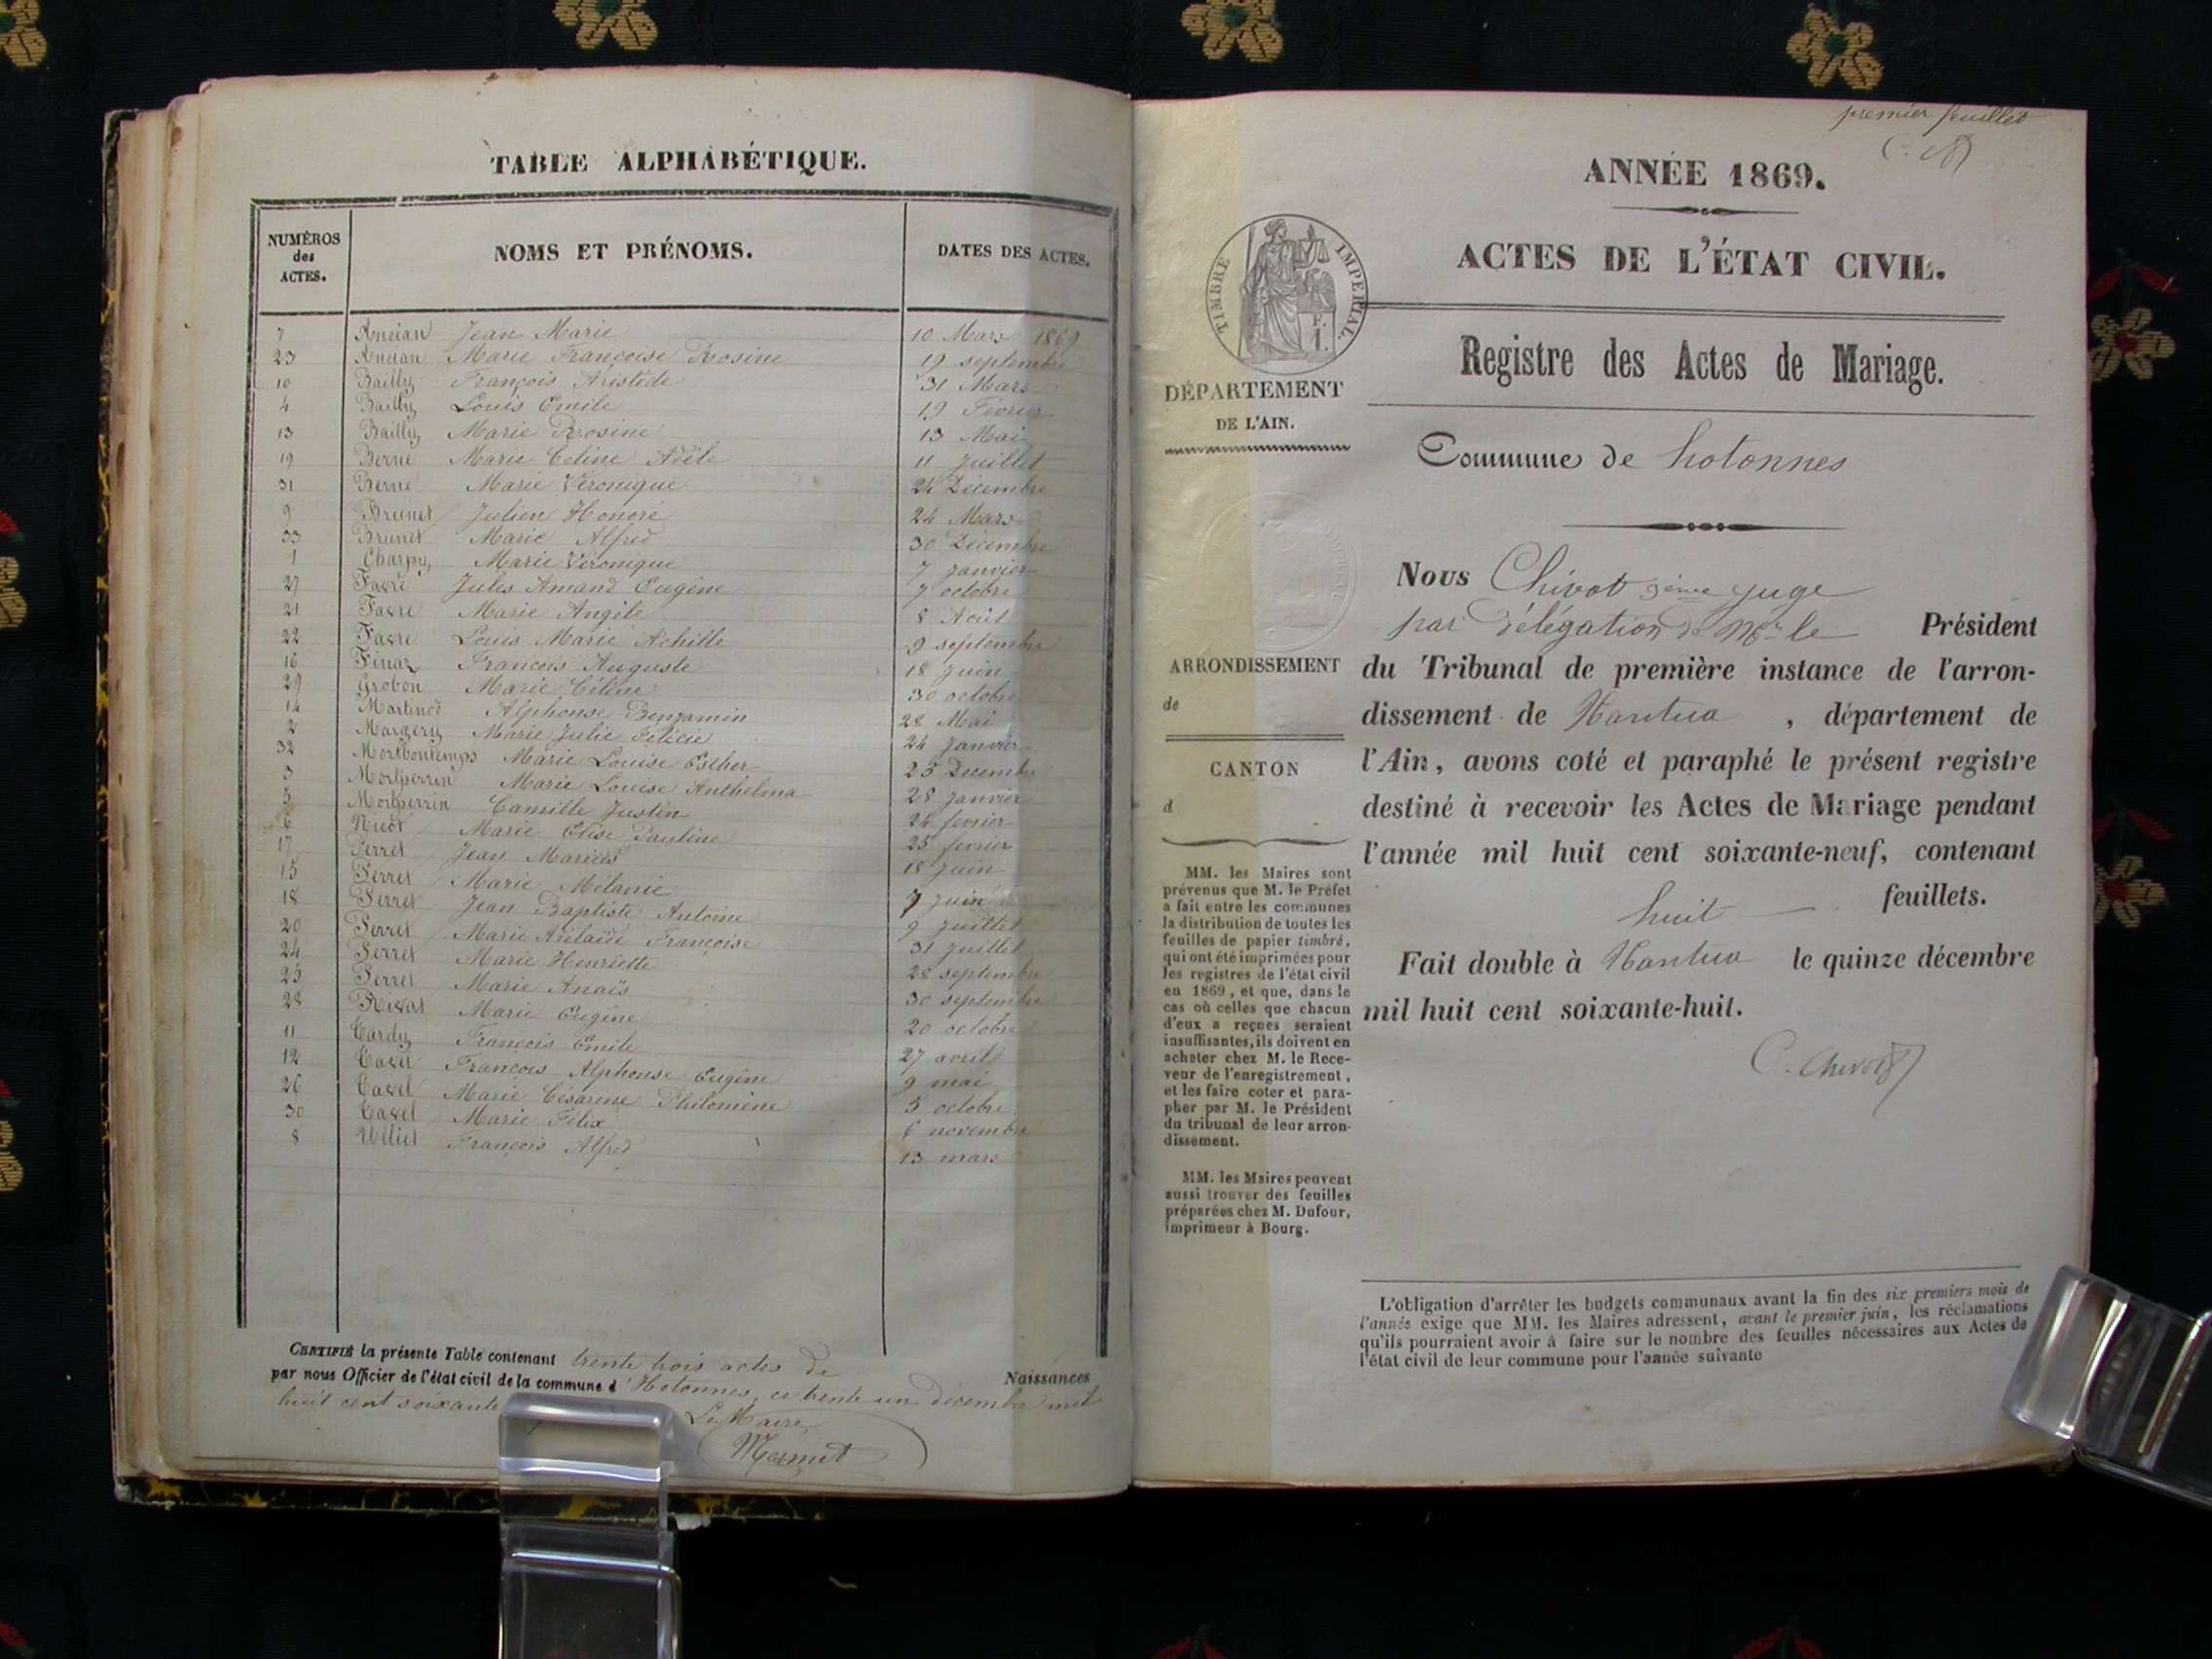 TABLE ALPHABÉTIQUE.
NUMÉROS des ACTES. NOMS ET PRÉNOMS. DATES DES ACTES.
7 Ancian Jean Marie 10 Mars 1869
23 Ancian Marie Françoise Rosine 19 septembre
10 Bailly François Aristide 31 Mars
4 Bailly Louis Emile 19 Février
13 Bailly Marie Rosine 13 Mai
19 Berne Marie Celine Adèle 11 Juillet
31 Berne Marie Véronique 24 Décembre
9 Brunet Julien Honoré 24 Mars
33 Brunet Marie Alfred 30 Décembre
1 Charpy Marie Véronique 7 Janvier
27 Favre Jules Amand Eugène 7 octobre
21 Favre Marie Angèle 8 Août
22 Favre Louis Marie Achille 9 septembre
16 Finaz François Auguste 18 Juin
29 Grobon Marie Céline 30 octobre
14 Martinod Alphonse Benjamin 28 Mai
2 Margery Marie Julie Félicie 24 Janvier
32 Mortbontemps Marie Louise Esther 25 Décembre
3 Mortperrin Marie Louise Anthelma 28 Janvier
5 Mortperrin Camille Justin 24 fevrier
6 Nicod Marie Elise Pauline 25 fevrier
17 Perret Jean Marius 18 Juin
15 Perret Marie Mélanie 7 Juin
18 Perret Jean Baptiste Antoine 9 Juillet
20 Perret Marie Adelaïde Françoise 31 Juillet
24 Perret Marie Henriette 28 septembre
25 Perret Marie Anaïs 30 septembre
28 Rivat Marie Eugène 20 octobre
11 Tardy François Emile 27 avril
12 Tavel François Alphonse Eugène 9 mai
26 Tavel Marie Césarine Philomène 5 octobre
30 Tavel Marie Félix 6 novembre
8 Ulliet François Alfred 13 mars
CERTIFIÉ la présente Table contenant trente trois actes de Naissances
par nous Officier de l'état civil de la commune d'Hotonnes, ce trente un decembre mil
huit cent soixante
Le Maire
Mermet
premier feuillet
ANNÉE 1869.
ACTES DE L'ÉTAT CIVIL.
Registre des Actes de Mariage.
TIMBRE IMPÉRIAL.
DÉPARTEMENT
DE L'AIN.
Commune de hotonnes
Nous Chivot 3ème juge
par délégation de Mr le Président
du Tribunal de première instance de l'arron-
dissement de Nantua, département de
l'Ain, avons coté et paraphé le présent registre
destiné à recevoir les Actes de Mariage pendant
l'année mil huit cent soixante-neuf, contenant
huit feuillets.
Fait double à Nantua le quinze décembre
mil huit cent soixante-huit.
C. Chivot
ARRONDISSEMENT
de
CANTON
d
MM. les Maires sont
prévenus que M. le Préfet
a fait entre les communes
la distribution de toutes les
feuilles de papier timbré,
qui ont été imprimées pour
les registres de l'état civil
en 1869, et que, dans le
cas où celles que chacun
d'eux a reçues seraient
insuffisantes, ils doivent en
acheter chez M. le Rece-
veur de l'enregistrement,
et les faire coter et para-
pher par M. le Président
du tribunal de leur arron-
dissement.
MM. les Maires peuvent
aussi trouver des feuilles
préparées chez M. Dufour,
imprimeur à Bourg.
L'obligation d'arrêter les budgets communaux avant la fin des six premiers mois de
l'année exige que MM. les Maires adressent, avant le premier juin, les réclamations
qu'ils pourraient avoir à faire sur le nombre des feuilles nécessaires aux Actes de
l'état civil de leur commune pour l'année suivante